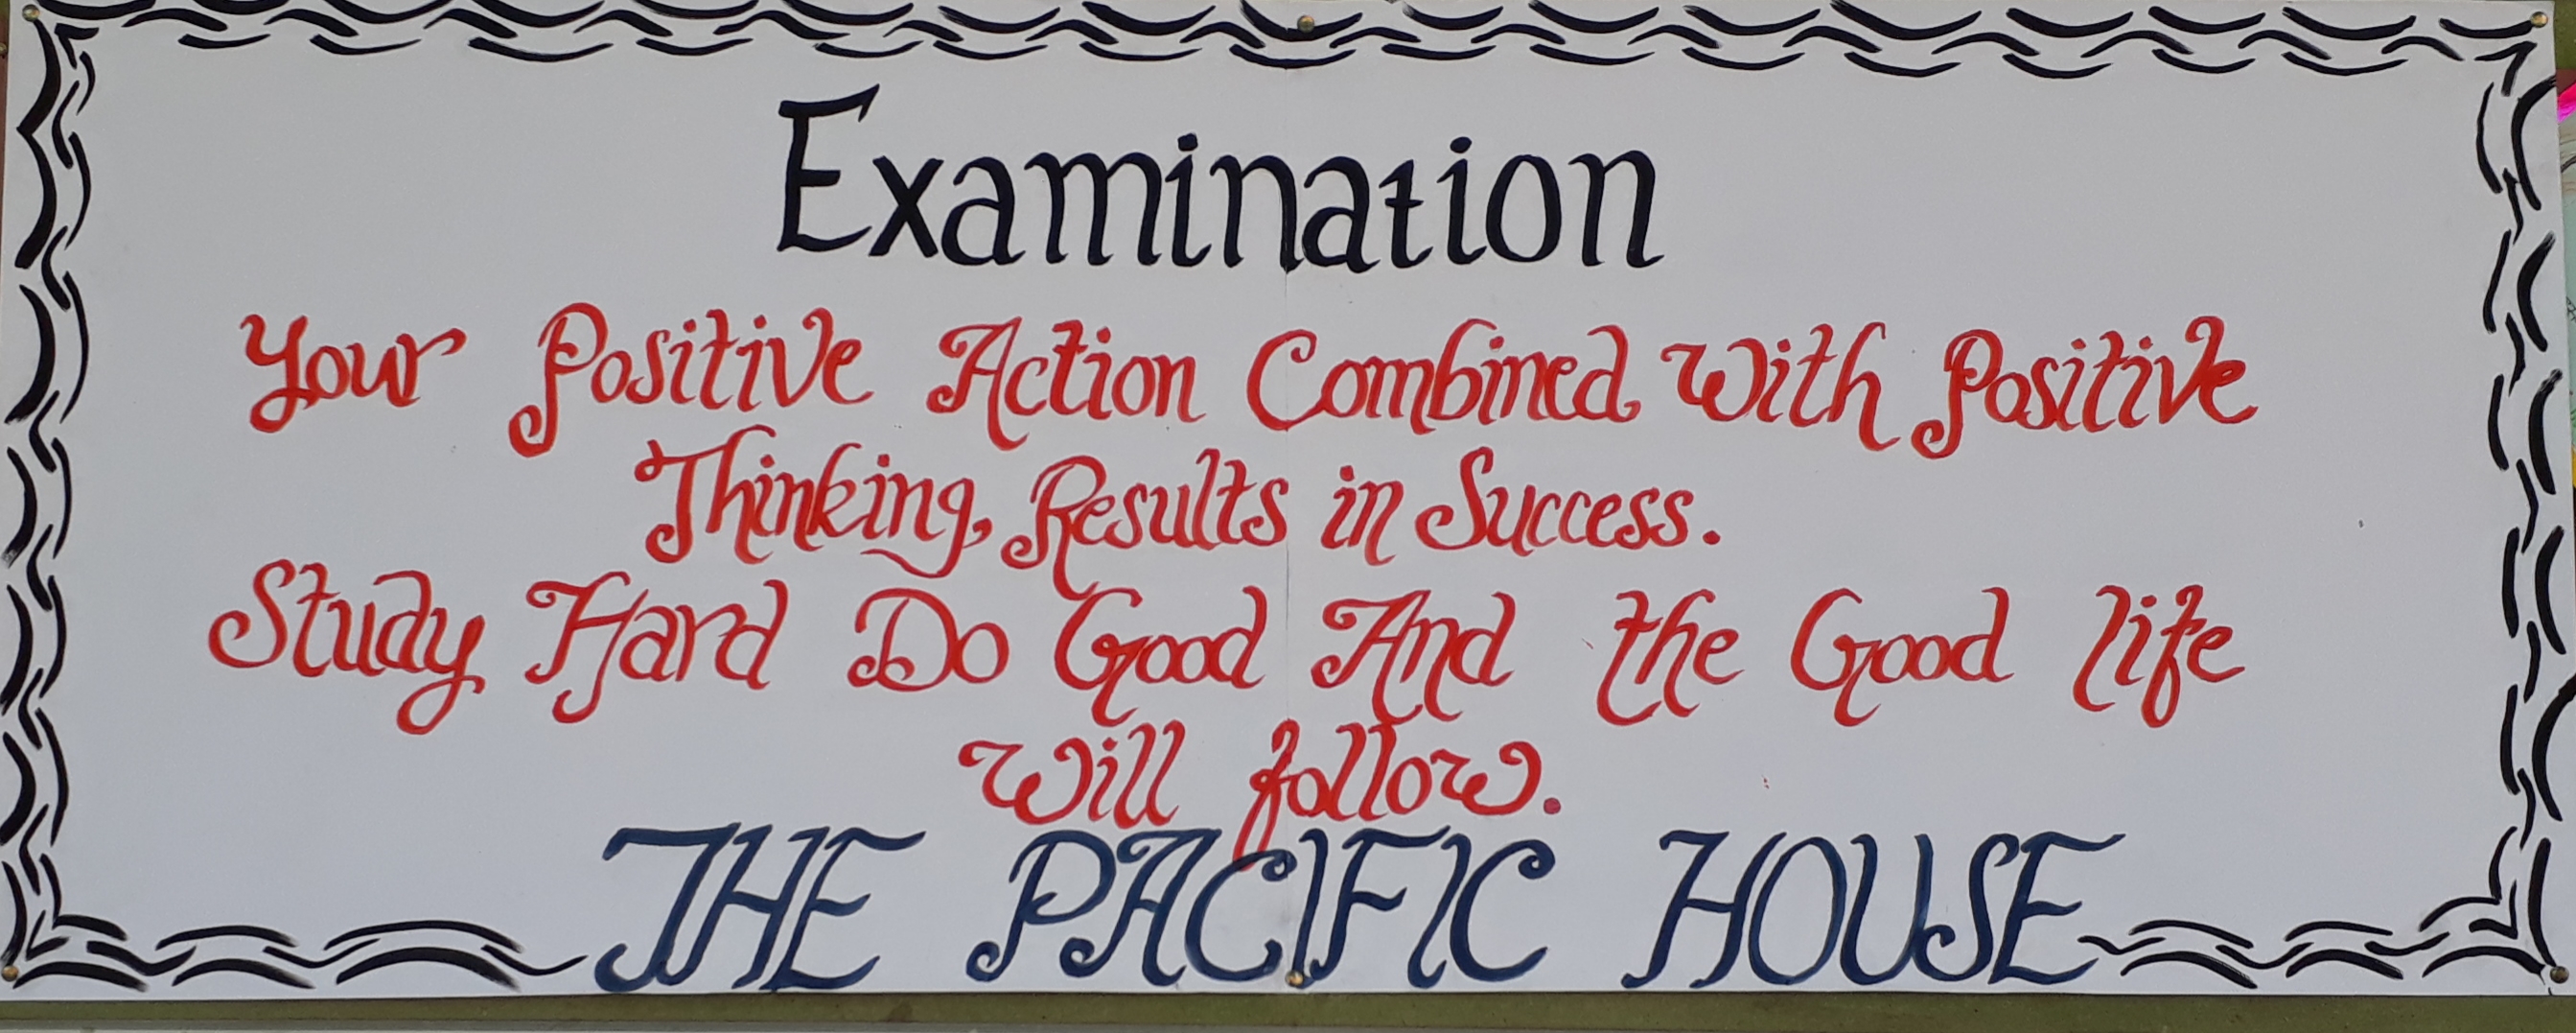 Examination
Your Positive Action Combined With Positive
Thinking, Results in Success.
Study Hard Do Good And the Good life
Will follow.
THE PACIFIC HOUSE